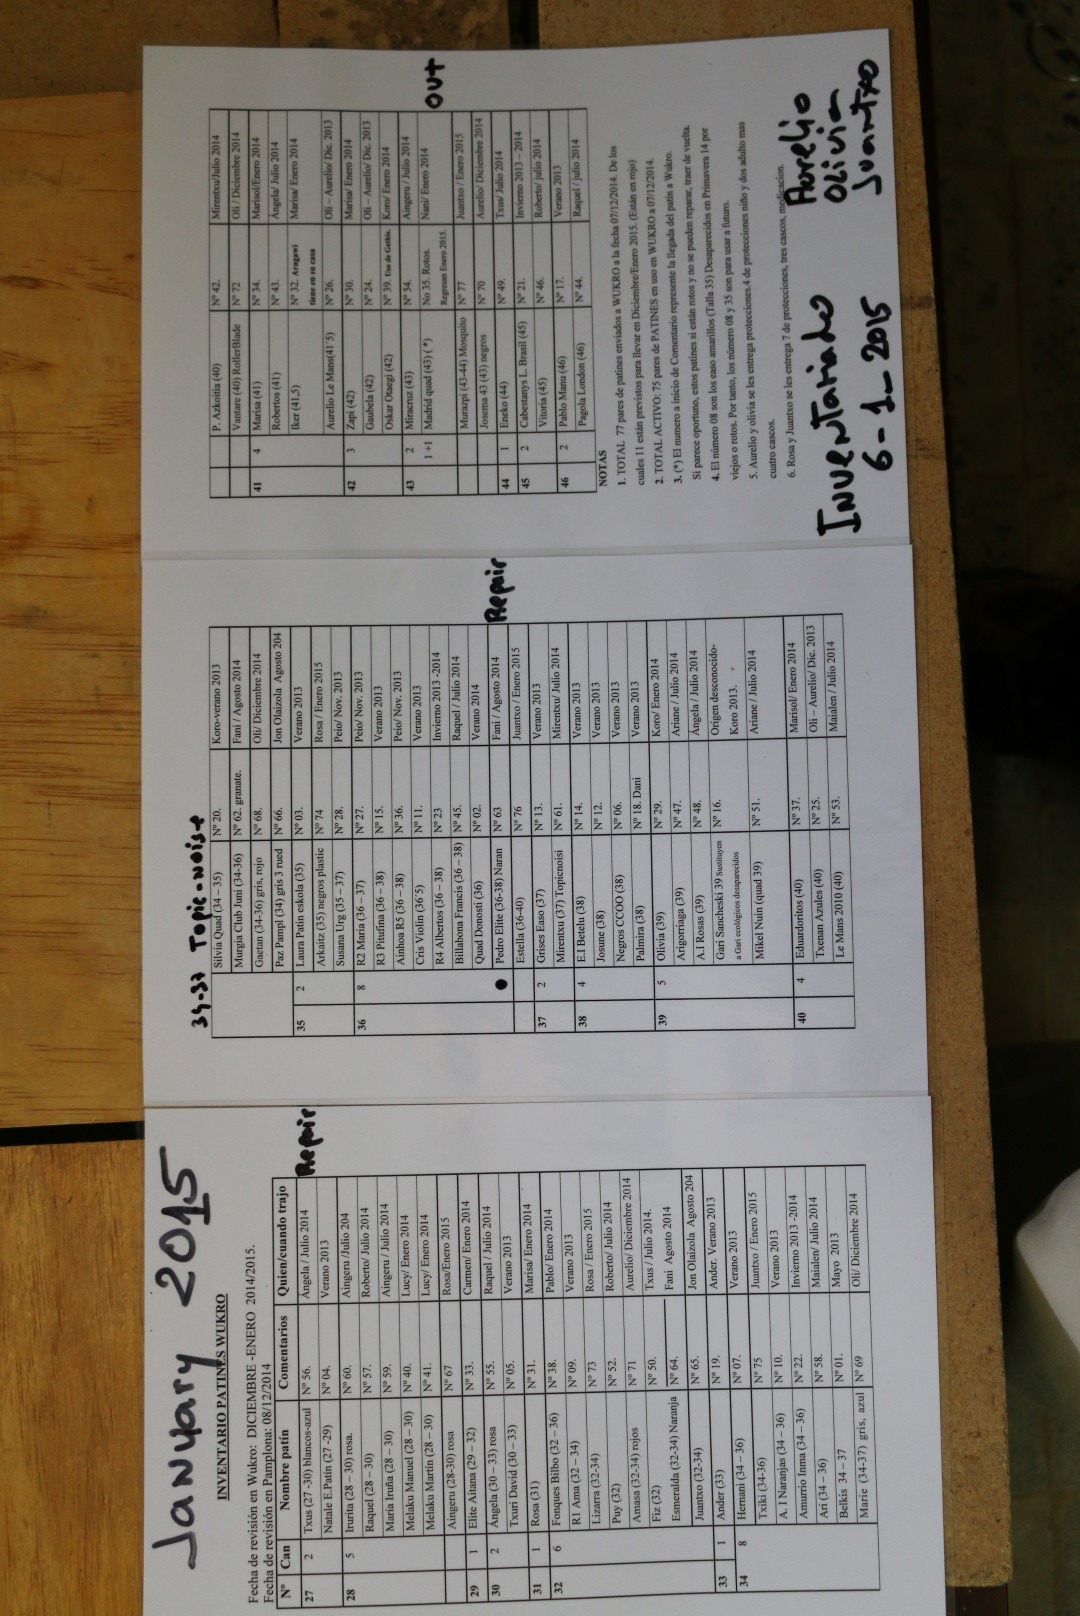 January 2015
INVENTARIO PATINES WUKRO
Fecha de revisión en Wukro: DICIEMBRE -ENERO 2014/2015.
Fecha de revisión en Pamplona: 08/12/2014
Nº Can Nombre patín Comentarios Quien/cuando trajo
27 2 Txus (27 -30) blancos-azul Nº 56. Ángela / Julio 2014 Repair
Natale E.Patin (27 -29) Nº 04. Verano 2013
28 5 Irurita (28 – 30) rosa. Nº 60. Aingeru /Julio 204
Raquel (28 – 30) Nº 57. Roberto/ Julio 2014
María Iruña (28 – 30) Nº 59. Aingeru / Julio 2014
Melaku Manuel (28 – 30) Nº 40. Lucy/ Enero 2014
Melaku Martín (28 – 30) Nº 41. Lucy/ Enero 2014
Aingeru (28-30) rosa Nº 67 Rosa/Enero 2015
29 1 Elite Aitana (29 – 32) Nº 33. Carmen/ Enero 2014
30 2 Ángela (30 – 33) rosa Nº 55. Raquel / Julio 2014
Txuri David (30 – 33) Nº 05. Verano 2013
31 1 Rosa (31) Nº 31. Marisa/ Enero 2014
32 6 Fonques Bilbo (32 – 36) Nº 38. Pablo/ Enero 2014
R1 Ama (32 – 34) Nº 09. Verano 2013
Lizarra (32-34) Nº 73 Rosa / Enero 2015
Puy (32) Nº 52. Roberto/ Julio 2014
Amasa (32-34) rojos Nº 71 Aurelio/ Diciembre 2014
Fiz (32) Nº 50. Txus / Julio 2014.
Esmeralda (32-34) Naranja Nº 64. Fani Agosto 2014
Juantxo (32-34) Nº 65. Jon Olaizola Agosto 204
33 1 Ander (33) Nº 19. Ander. Verano 2013
34 8 Hernani (34 – 36) Nº 07. Verano 2013
Txiki (34-36) Nº 75 Juantxo / Enero 2015
A. I Naranjas (34 – 36) Nº 10. Verano 2013
Amurrio Inma (34 – 36) Nº 22. Invierno 2013 -2014
Ari (34 – 36) Nº 58. Maialen/ Julio 2014
Belkis 34 – 37 Nº 01. Mayo 2013
Marie (34-37) gris, azul Nº 69 Oli/ Diciembre 2014
34-37 Topic-noise
Silvia Quad (34 – 35) Nº 20. Koro-verano 2013
Murgia Club Juni (34-36) Nº 62. granate. Fani / Agosto 2014
Gaetan (34-36) gris, rojo Nº 68. Oli/ Diciembre 2014
Paz Pampl (34) gris 3 rued Nº 66. Jon Olaizola Agosto 204
35 2 Laura Patín eskola (35) Nº 03. Verano 2013
Arkaitz (35) negros plastic Nº 74 Rosa / Enero 2015
Susana Urg (35 – 37) Nº 28. Peio/ Nov. 2013
36 8 R2 María (36 – 37) Nº 27. Peio/ Nov. 2013
R3 Pitufina (36 – 38) Nº 15. Verano 2013
Ainhoa R5 (36 – 38) Nº 36. Peio/ Nov. 2013
Cris Violin (36'5) Nº 11. Verano 2013
R4 Albertos (36 – 38) Nº 23 Invierno 2013 -2014
Billabona Francis (36 – 38) Nº 45. Raquel / Julio 2014
Quad Donosti (36) Nº 02. Verano 2014
Pedro Elite (36-38) Naran Nº 63 Fani / Agosto 2014 Repair
Estella (36-40) Nº 76 Juantxo / Enero 2015
37 2 Grises Easo (37) Nº 13. Verano 2013
Mirentxu (37) Topicnoisi Nº 61. Mirentxu/ Julio 2014
38 4 E.I Betelu (38) Nº 14. Verano 2013
Josune (38) Nº 12. Verano 2013
Negros CCOO (38) Nº 06. Verano 2013
Palmira (38) Nº 18. Dani Verano 2013
39 5 Olivia (39) Nº 29. Koro/ Enero 2014
Arigorriaga (39) Nº 47. Ariane / Julio 2014
A.I Rosas (39) Nº 48. Ángela / Julio 2014
Gari Sancheski 39 Sustituyen Nº 16. Origen desconocido-
a Gari ecológicos desaparecidos Koro 2013.
Mikel Nuin (quad 39) Nº 51. Ariane / Julio 2014
40 4 Eduardoritos (40) Nº 37. Marisol/ Enero 2014
Txenan Azules (40) Nº 25. Oli – Aurelio/ Dic. 2013
Le Mans 2010 (40) Nº 53. Maialen / Julio 2014
P. Azkoitia (40) Nº 42. Mirentxu/Julio 2014
Vantare (40) RollerBlade Nº 72 Oli / Diciembre 2014
41 4 Marisa (41) Nº 34. Marisol/Enero 2014
Robertos (41) Nº 43. Ángela/ Julio 2014
Iker (41,5) Nº 32. Aragawi Marisa/ Enero 2014
tiene en su casa
Aurelio Le Mans(41'5) Nº 26. Oli – Aurelio/ Dic. 2013
42 3 Zapi (42) Nº 30. Marisa/ Enero 2014
Gaubela (42) Nº 24. Oli – Aurelio/ Dic. 2013
Oskar Otaegi (42) Nº 39. Uso de Gethin. Koro/ Enero 2014
43 2 Miracruz (43) Nº 54. Aingeru / Julio 2014
1 +1 Madrid quad (43) (*) No 35. Rotos. Nani/ Enero 2014 OUT
Regresan Enero 2015.
Murazpi (43-44) Mosquito Nº 77 Juantxo / Enero 2015
Josema 43 (43) negros Nº 70 Aurelio/ Diciembre 2014
44 1 Eneko (44) Nº 49. Txus/ Julio 2014
45 2 Cabestanys L. Brasil (45) Nº 21. Invierno 2013 – 2014
Vitoria (45) Nº 46. Roberto/ julio 2014
46 2 Pablo Manu (46) Nº 17. Verano 2013
Pagola London (46) Nº 44. Raquel / julio 2014
NOTAS
1. TOTAL 77 pares de patines enviados a WUKRO a la fecha 07/12/2014. De los
cuales 11 están previstos para llevar en Diciembre/Enero 2015. (Están en rojo)
2. TOTAL ACTIVO: 75 pares de PATINES en uso en WUKRO a 07/12/2014.
3. (*) El numero a inicio de Comentario represente la llegada del patín a Wukro.
Si parece oportuno, estos patines si están rotos y no se pueden reparar, traer de vuelta.
4. El número 08 son los easo amarillos (Talla 35) Desaparecidos en Primavera 14 por
viejos o rotos. Por tanto, los número 08 y 35 son para usar a futuro.
5. Aurelio y olivia se les entrega protecciones.4 de protecciones niño y dos adulto mas
cuatro cascos.
6. Rosa y Juantxo se les entrega 7 de protecciones, tres cascos, medicacion.
Inventariado
6-1-2015
Aurelio
Olivia
Juantxo